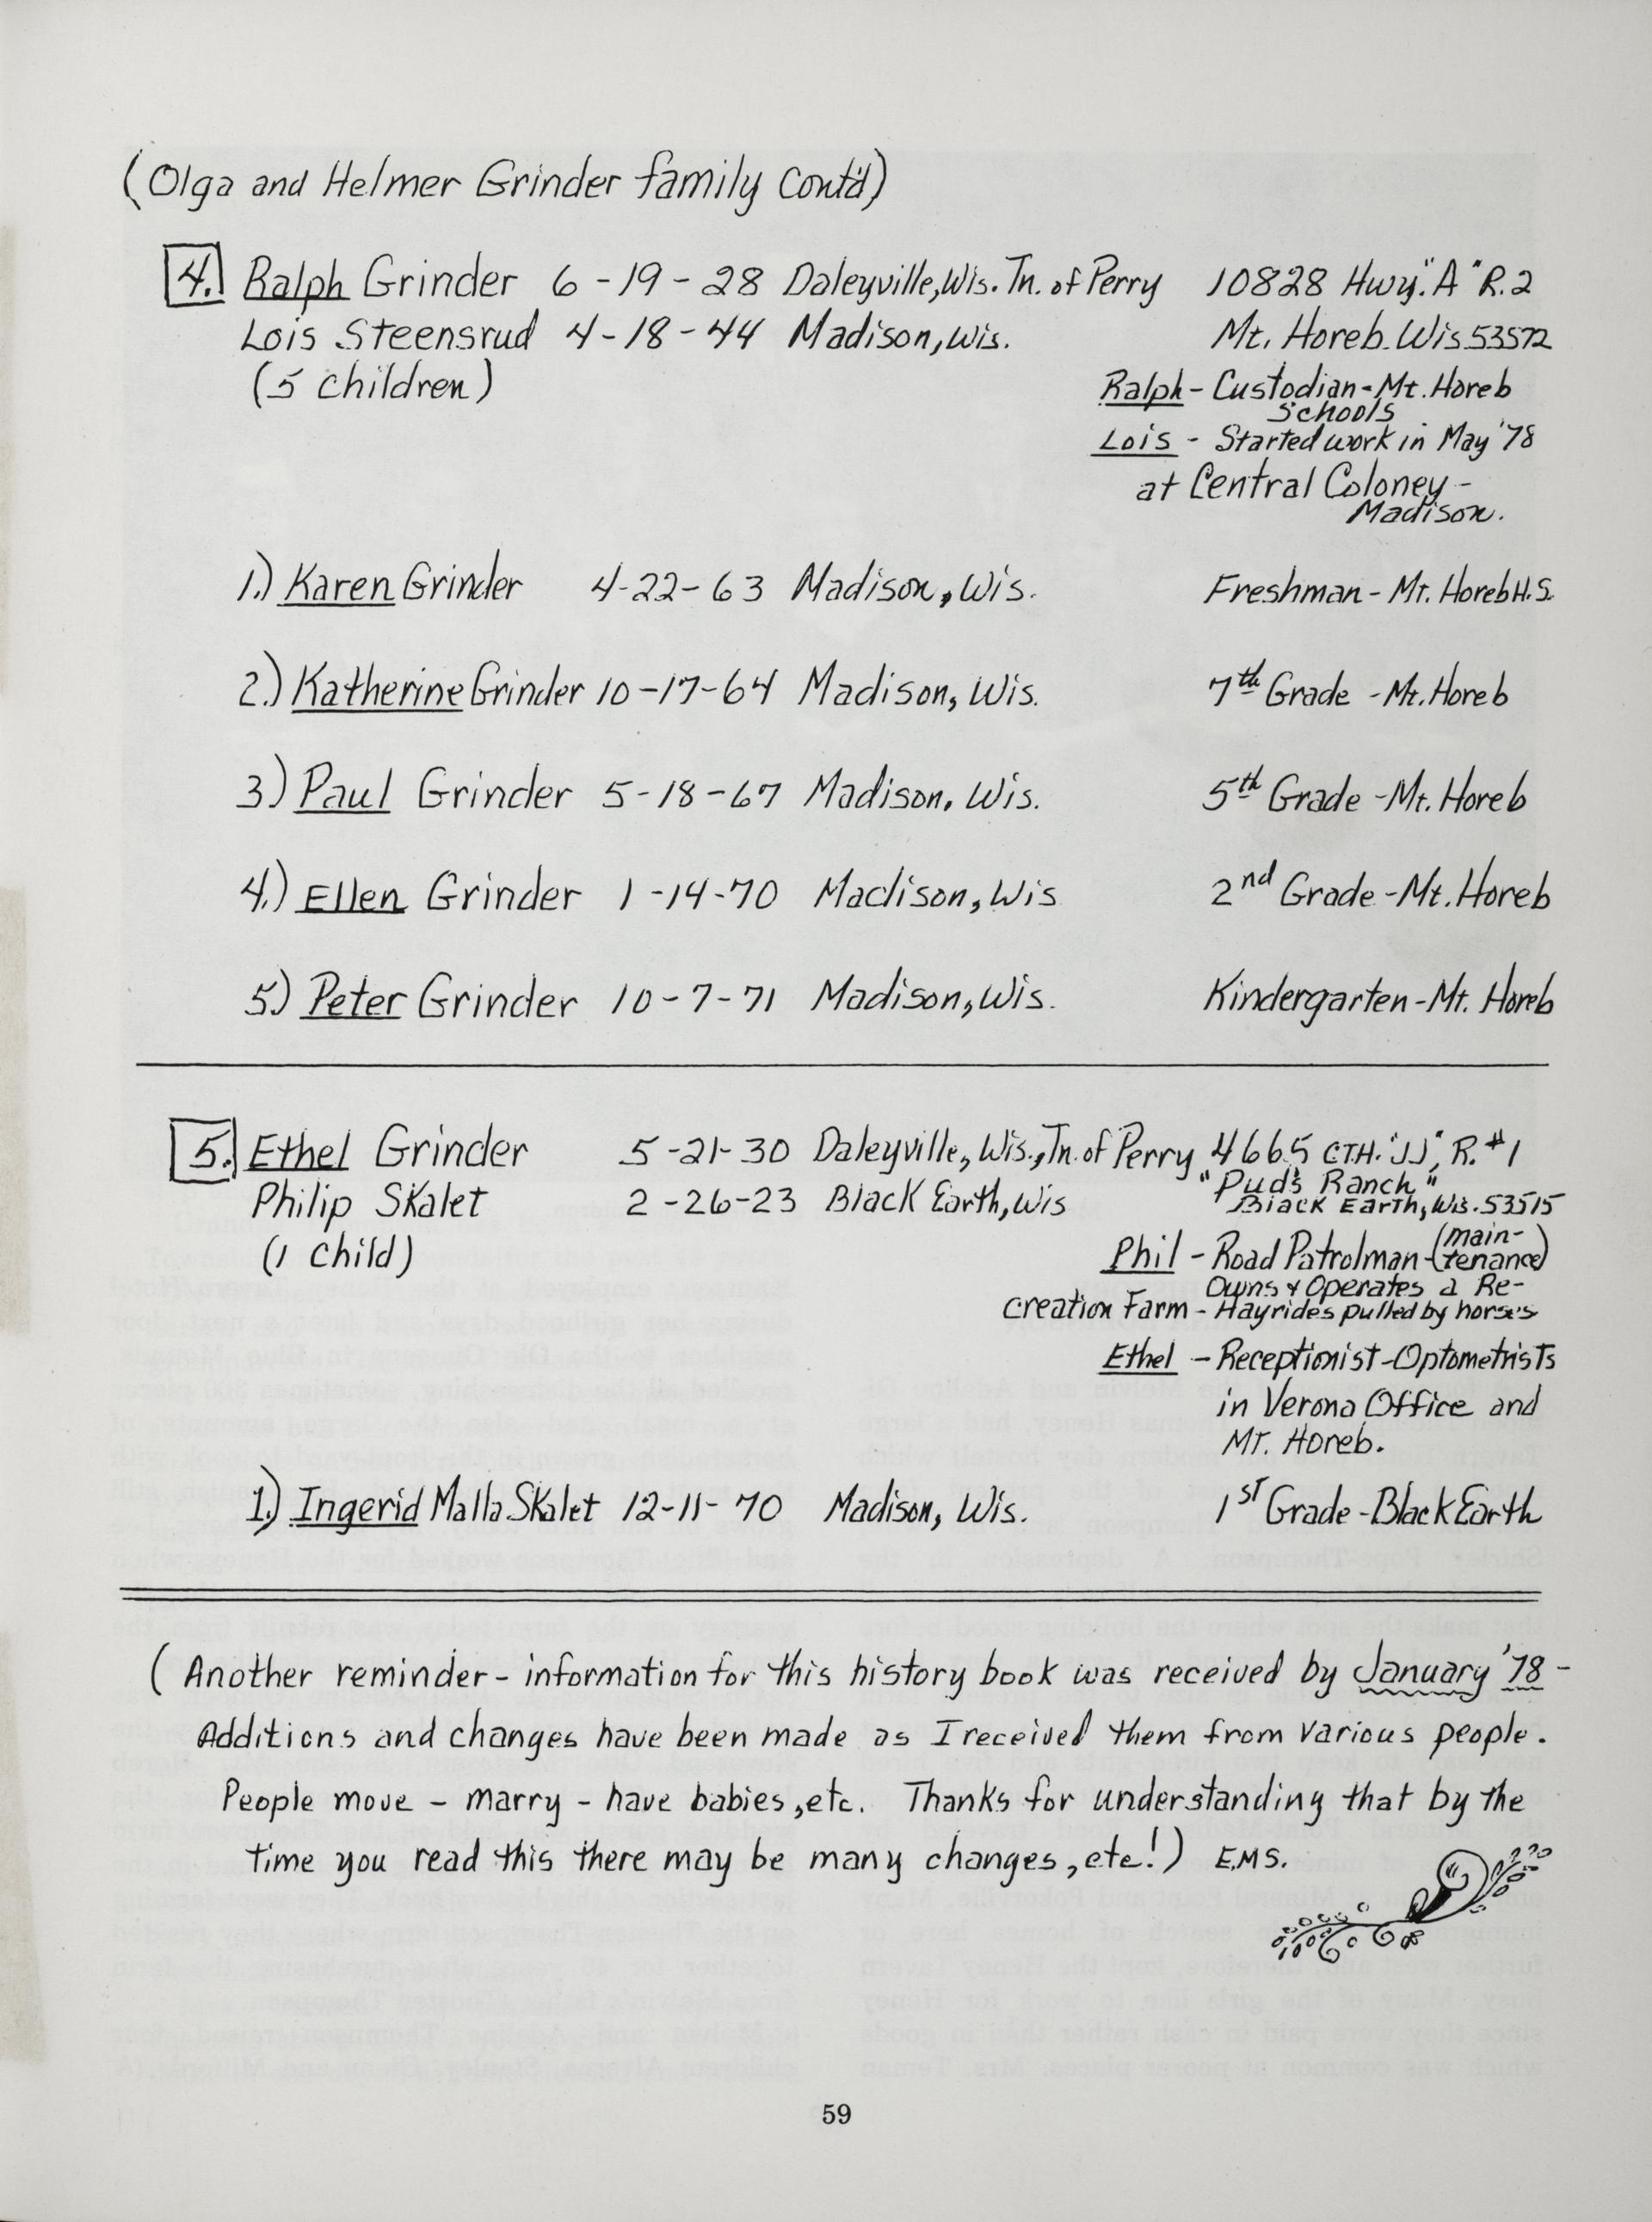 (Olga and Helmer Grinder family Cont'd)
4. Ralph Grinder 6-19-28 Daleyville, Wis. Tn. of Perry 10828 Hwy. "A" R.2
Lois Steensrud 4-18-44 Madison, Wis. Mt. Horeb. Wis 53572
(5 children) Ralph - Custodian - Mt. Horeb
Schools
Lois - Started work in May '78
at Central Coloney -
Madison.
1.) Karen Grinder 4-22-63 Madison, Wis. Freshman - Mt. Horeb H.S.
2.) Katherine Grinder 10-17-64 Madison, Wis. 7th Grade - Mt. Horeb
3.) Paul Grinder 5-18-67 Madison, Wis. 5th Grade - Mt. Horeb
4.) Ellen Grinder 1-14-70 Madison, Wis 2nd Grade - Mt. Horeb
5.) Peter Grinder 10-7-71 Madison, Wis. Kindergarten - Mt. Horeb
5. Ethel Grinder 5-21-30 Daleyville, Wis., Tn. of Perry 4665 CTH. "JJ", R. #1
"Pud's Ranch"
Philip Skalet 2-26-23 Black Earth, Wis Black Earth, Wis. 53515
(1 child) Phil - Road Patrolman - (main-
tenance)
Owns & Operates a Re-
creation Farm - Hayrides pulled by horses
Ethel - Receptionist - Optometrists
in Verona Office and
Mt. Horeb.
1.) Ingerid Malla Skalet 12-11-70 Madison, Wis. 1st Grade - Black Earth
(Another reminder - information for this history book was received by January '78 -
Additions and changes have been made as I received them from various people.
People move - marry - have babies, etc. Thanks for understanding that by the
time you read this there may be many changes, etc!) E.M.S.
59